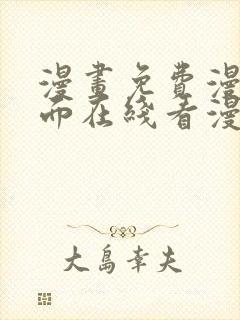 漫畫免費漫
而在綫看漫
大島幸夫